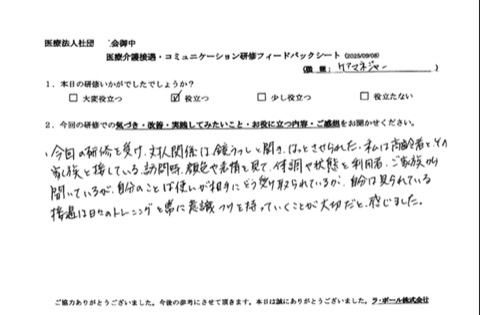 医療法人社団 会御中
医療介護接遇・コミュニケーション研修フィードバックシート (2025/09/08)
(職種: ケアマネジャー )
1．本日の研修いかがでしたでしょうか?
□ 大変役立つ ☑ 役立つ □ 少し役立つ □ 役立たない
2．今回の研修での気づき・改善・実践してみたいこと・お役に立つ内容・ご感想をお聞かせください。
今回の研修を受け、対人関係は、鏡うつしと聞き、はっとさせられた。私は高齢者とその
家族と接している。訪問時、顔色や表情を見て、体調や状態を利用者、ご家族から
聞いているが、自分のことば使いが相手にどう受け取られているか、自分は見られている
接遇は日々のトレーニングと常に意識づけを持っていくことが大切だと、感じました。
ご協力ありがとうございました。今後の参考にさせて頂きます。本日は誠にありがとうございました。ラ・ポール株式会社